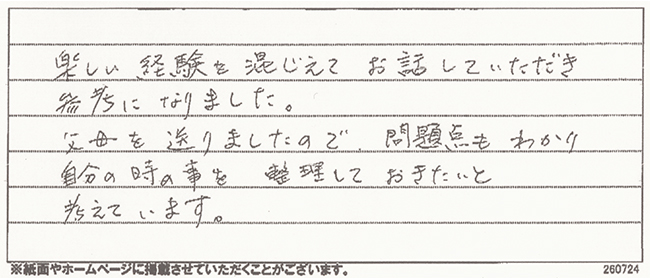 楽しい経験を混じえてお話していただき
参考になりました。
父母を送りましたので、問題点もわかり
自分の時の事を整理しておきたいと
考えています。
※紙面やホームページに掲載させていただくことがございます。
260724